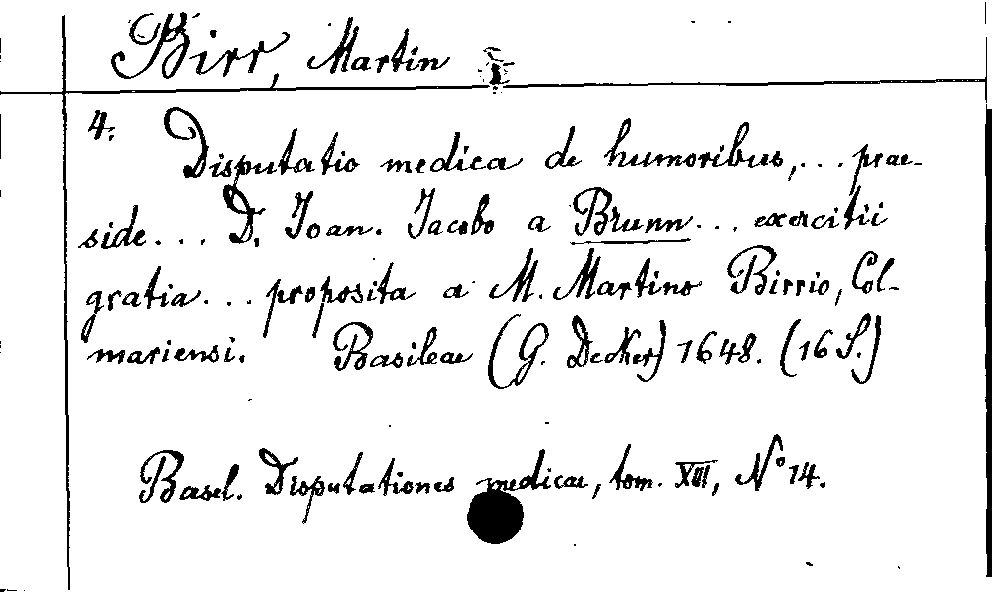 Birr, Martin
4. Disputatio medica de humoribus,... prae-
side... D. Joan. Jacobo a Brunn... exercitii
gratia... proposita a M. Martino Birrio, Col-
mariensi. Basileae (G. Decker) 1648. (16 S.)
Basel. Disputationes medicae, tom. XIII, No 14.